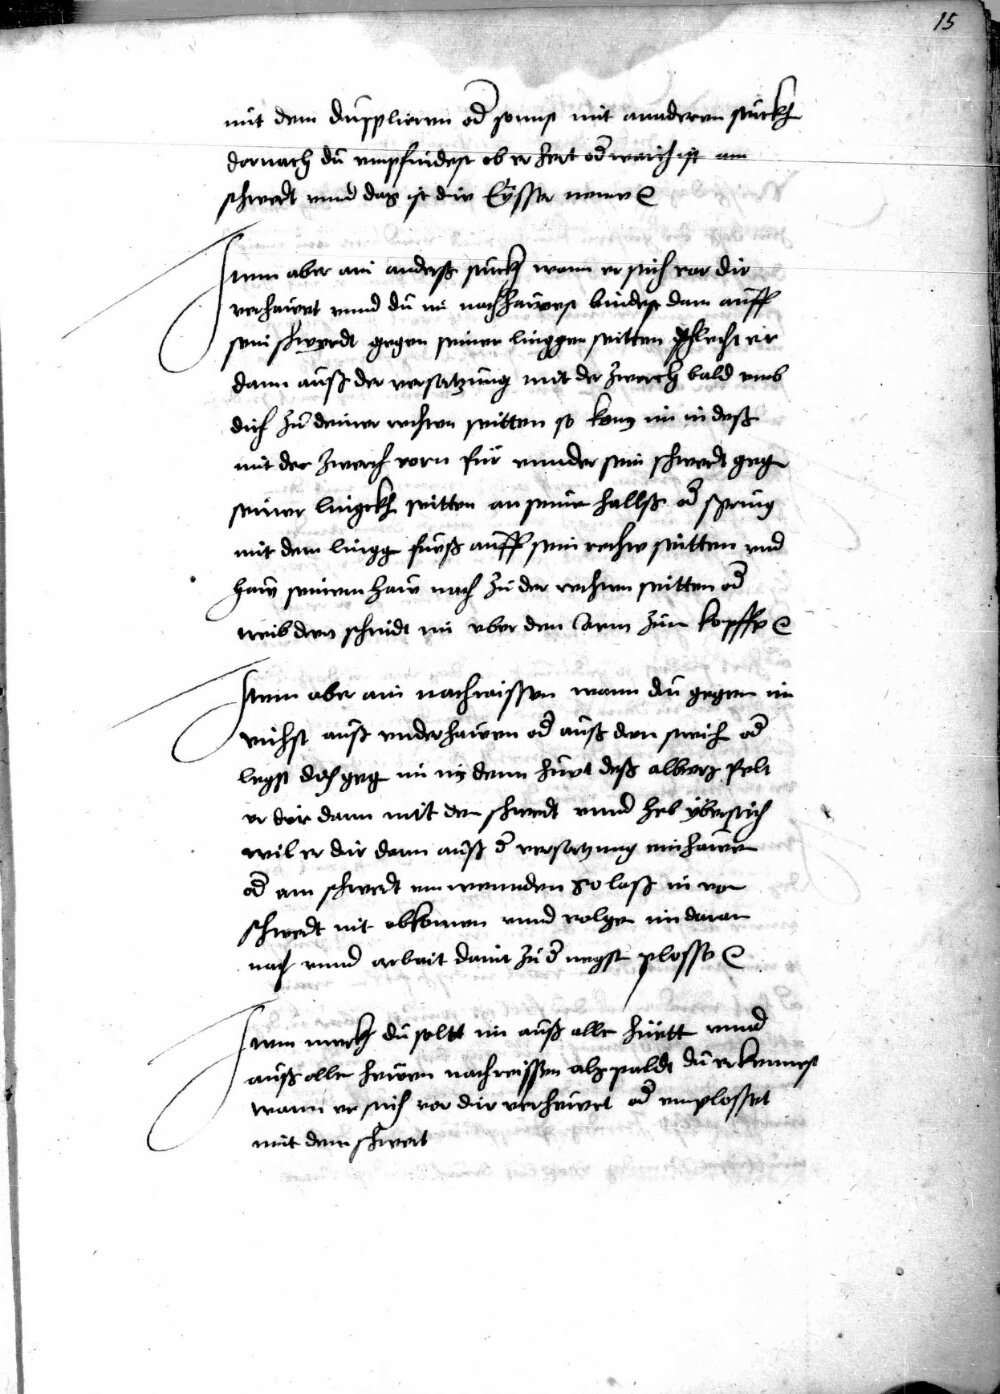 15
mit dem dupplieren oď sonnst mit annderen stuckh
darnach du empfindest ob er hert oď waich ist am
schwert vnnd das ist die Eüsser neme
Item aber ain anderß stuckh wann er sich vor dir
verhawet vnnd du im nachhawest bindest dann auff
sein schwerdt gegen seiner linggen seitten schlecht er
dann auß der versatzung mit der zwerch bald vmb
dich zu deiner rechten seitten so kom im in deß
mit der zwerch vorn für vnnder sein schwerdt geg
seiner linckh seitten an seine hallß oď spring
mit dem lingg fueß auff sein rechte seitten vnd
haw seinem haw nach zu der rechten seitten oď
treib den schnidt im vber den Arm zum kopffe
Item aber ain nachraissen wann du gegen im
vichst auß vnderhawen oď auß den streich oď
legst dich geg im in denn huet deß albers felt
er dir dann mit dem schwert vnnd heb übersich
wil er dir dann auß ď versatzung einhawen
oď am schwert ein wennden so laß in vom
schwert nit abkomen vnnd volge im daran
nach vnnd arbait damit zu ď negst plosse
Item merckh du soltt im auß alle huett vnnd
auß alle hewen nachreissen als paldt du erkennest
wann er sich vor dir verhewet oď emplosset
mit dem schwert